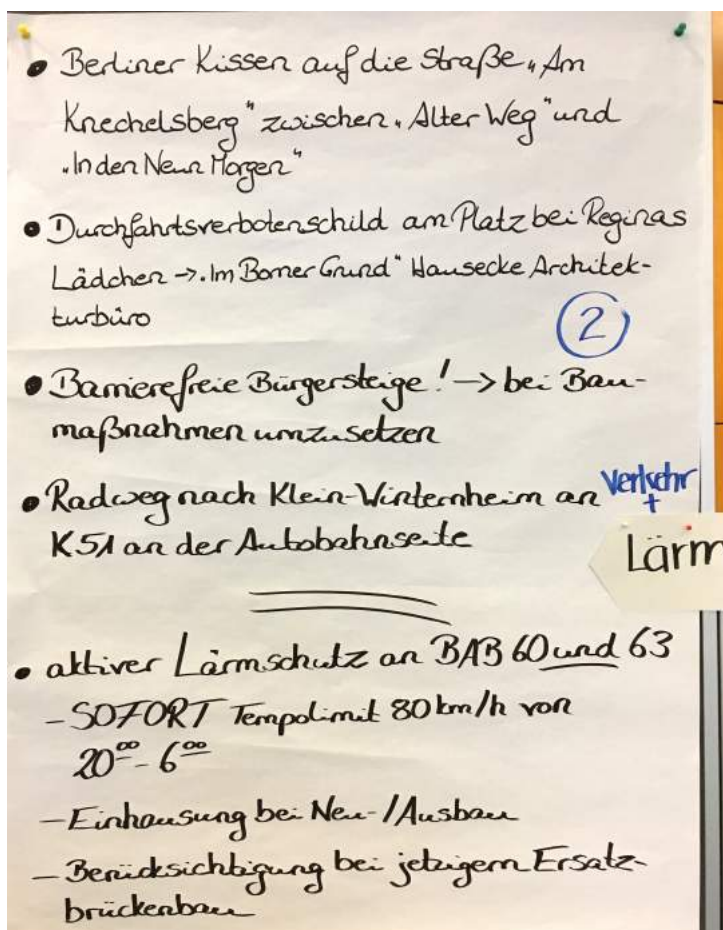 • Berliner Kissen auf die Straße „Am
Knechelsberg“ zwischen „Alter Weg“ und
„In den Neun Morgen“
• Durchfahrtsverbotenschild am Platz bei Reginas
Lädchen -> „Im Borner Grund“ Hausecke Architek-
turbüro
2
• Barrierefreie Bürgersteige! -> bei Bau-
maßnahmen umzusetzen
• Radweg nach Klein-Winternheim an
K51 an der Autobahnseite
Verkehr
+
Lärm
• aktiver Lärmschutz an BAB 60 und 63
- SOFORT Tempolimit 80 km/h von
20⁰⁰ - 6⁰⁰
- Einhausung bei Neu-/Ausbau
- Berücksichtigung bei jetzigem Ersatz-
brückenbau